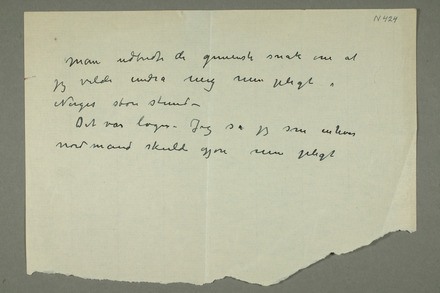 N 424
Man udbredte de gemeneste snak om at
jeg vilde undra meg min pligt i
Norges store stund.
Det var løgn. Jeg sa jeg som enhver
nordmand skulde gjøre min pligt